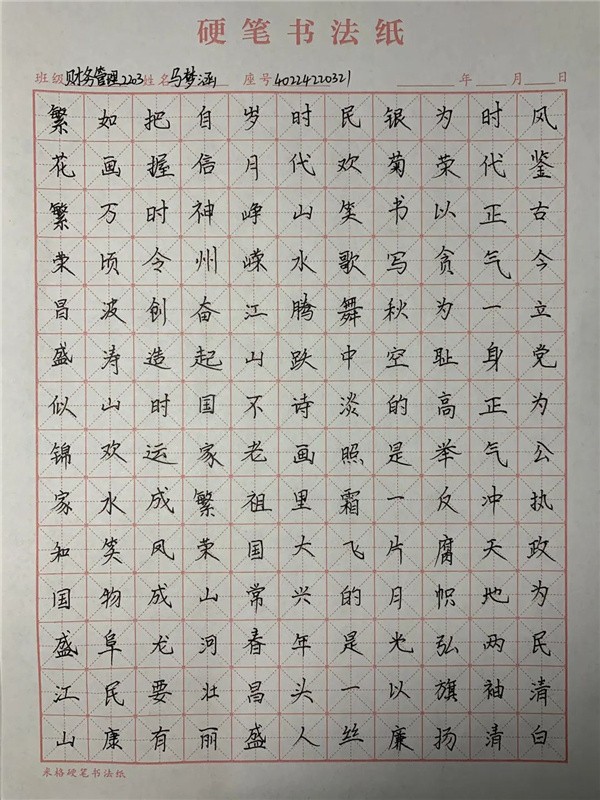 硬笔书法纸
班级 财务管理2203 姓名 马梦涵 座号 40224220321 年 月 日
繁花繁荣昌盛似锦家和国盛江山
如画万顷波涛山欢水笑物阜民康
把握时令创造时运成凤成龙要有
自信神州奋起国家繁荣山河壮丽
岁月峥嵘江山不老祖国常春昌盛
时代山水腾跃诗画里大兴年头人
民欢笑歌舞中淡照霜飞的是一丝
银菊书写秋空的是一片月光以廉
为荣以贪为耻高举反腐帜弘旗扬
时代正气一身正气冲天地两袖清
风鉴古今立党为公执政为民清白
米格硬笔书法纸